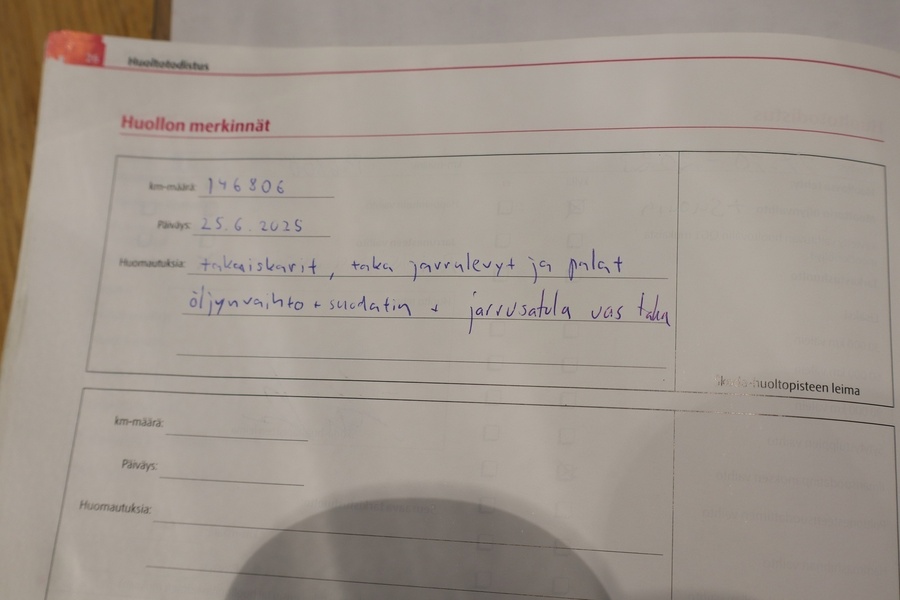 26 Huoltotodistus
Huollon merkinnät
km-määrä: 146806
Päiväys: 25.6.2025
Huomautuksia: takaiskarit, taka jarrulevyt ja palat
öljynvaihto + suodatin + jarrusatula vas taka
-huoltopisteen leima
km-määrä:
Päiväys:
Huomautuksia: